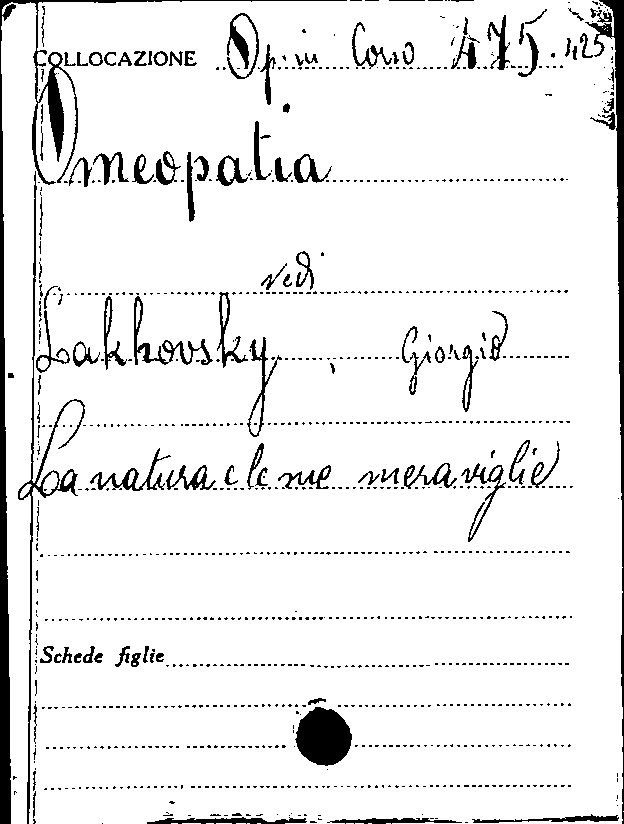 COLLOCAZIONE Op. in Corso 475.425
Omeopatia
vedi
Lakhovsky, Giorgio
La natura e le sue meraviglie
Schede figlie